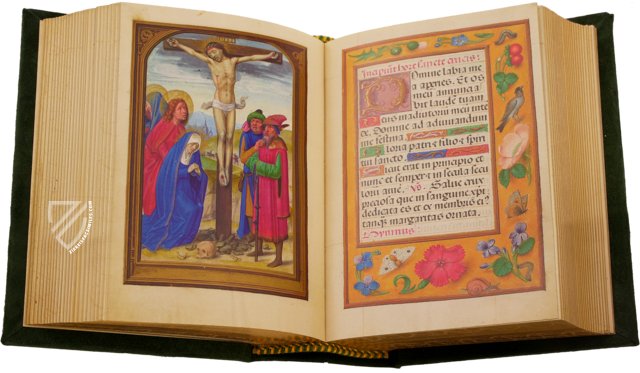 Incipiūt hore sancte crucis:
Domine labia me
a aperies. Et os
meū annunciā
bit laudē tuam
Deus in adiutoriū meū inte
de. Domine ad adiuvandum
me festina.
Gloria patri et filio et spiri
tui sancto.
Sicut erat in principio et
nunc et semper et in secula secu
lorū amē. Vs. Salve crux
preciosa que in sanguine xp̄i
dedicata es et ex membris eiꝰ
tanq̄ margaritis ornata.